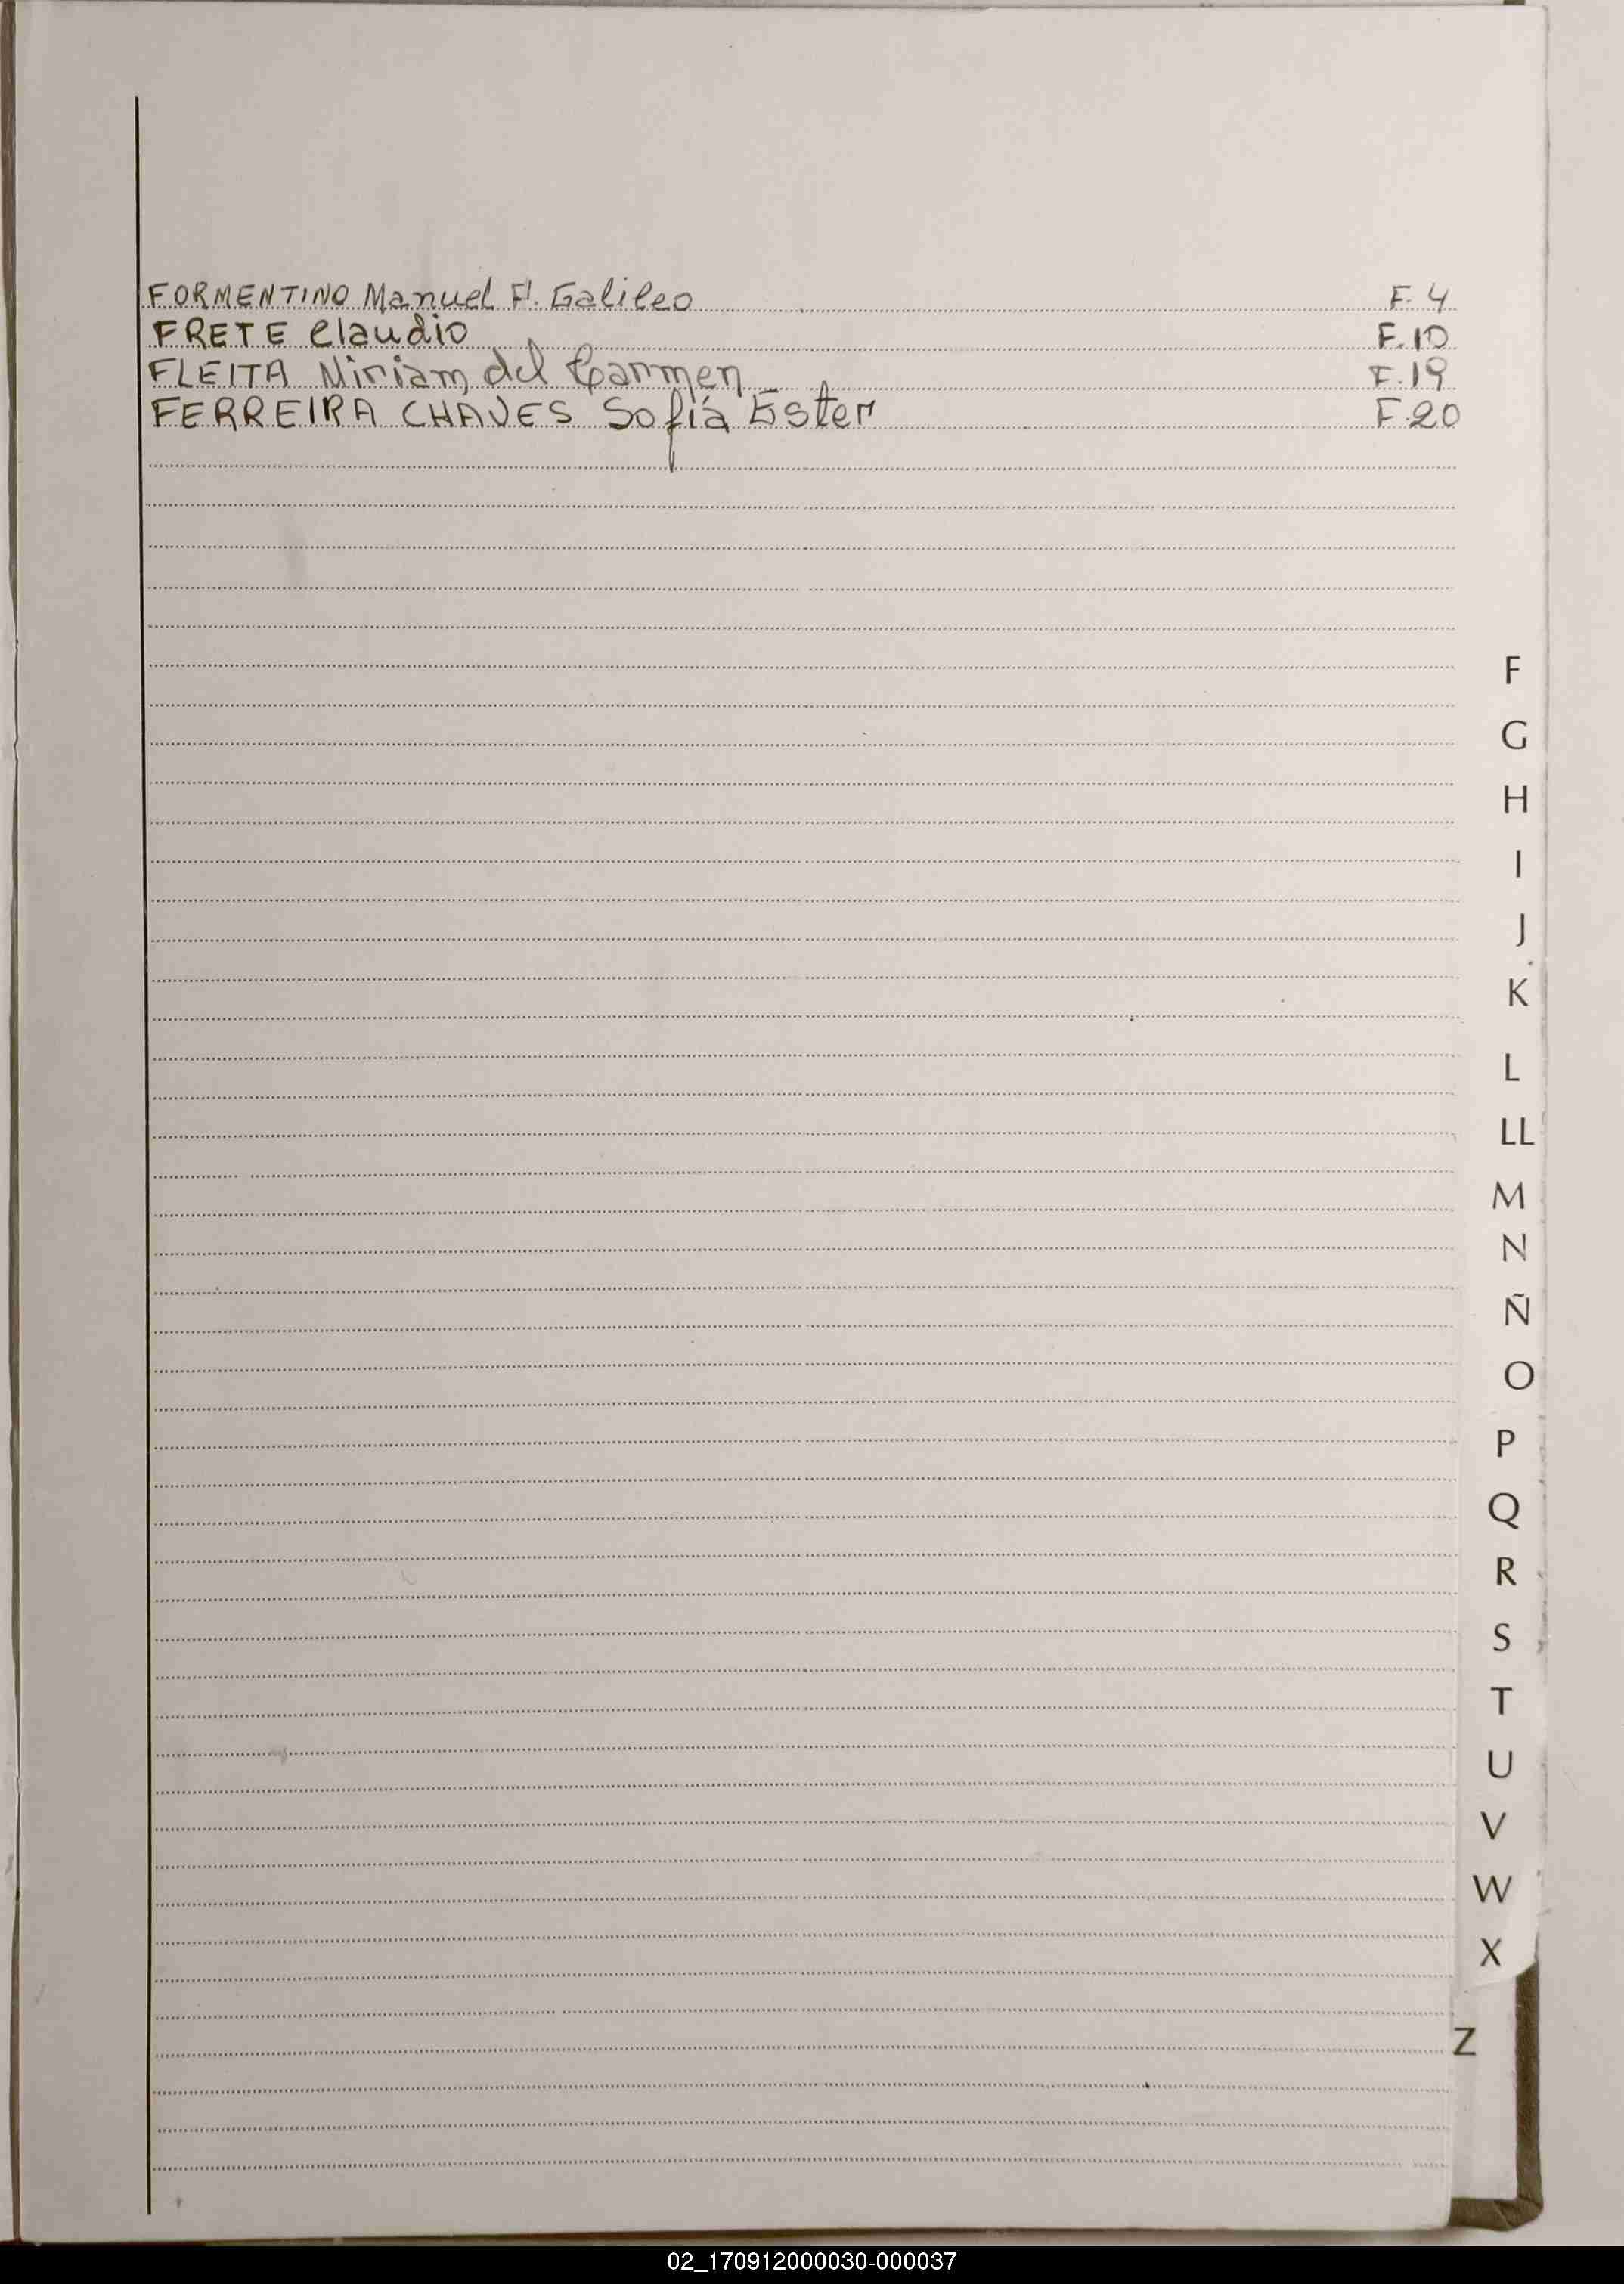 FORMENTINO Manuel A. Galileo F. 4
FRETE Claudio F. 10
FLEITA Miriam del Carmen F. 19
FERREIRA CHAVES Sofía Ester F. 20
F
G
H
I
J
K
L
LL
M
N
Ñ
O
P
Q
R
S
T
U
V
W
X
Z
02_170912000030-000037